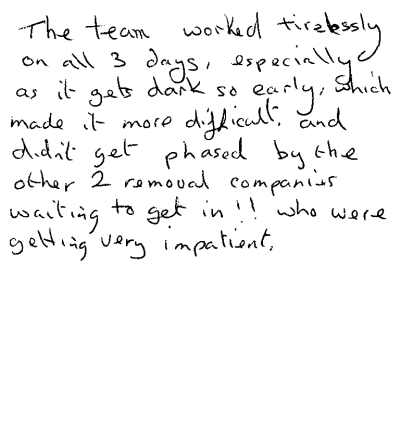 The team worked tirelessly
on all 3 days, especially
as it gets dark so early, which
made it more difficult. and
didn't get phased by the
other 2 removal companies
waiting to get in!! who were
getting very impatient.